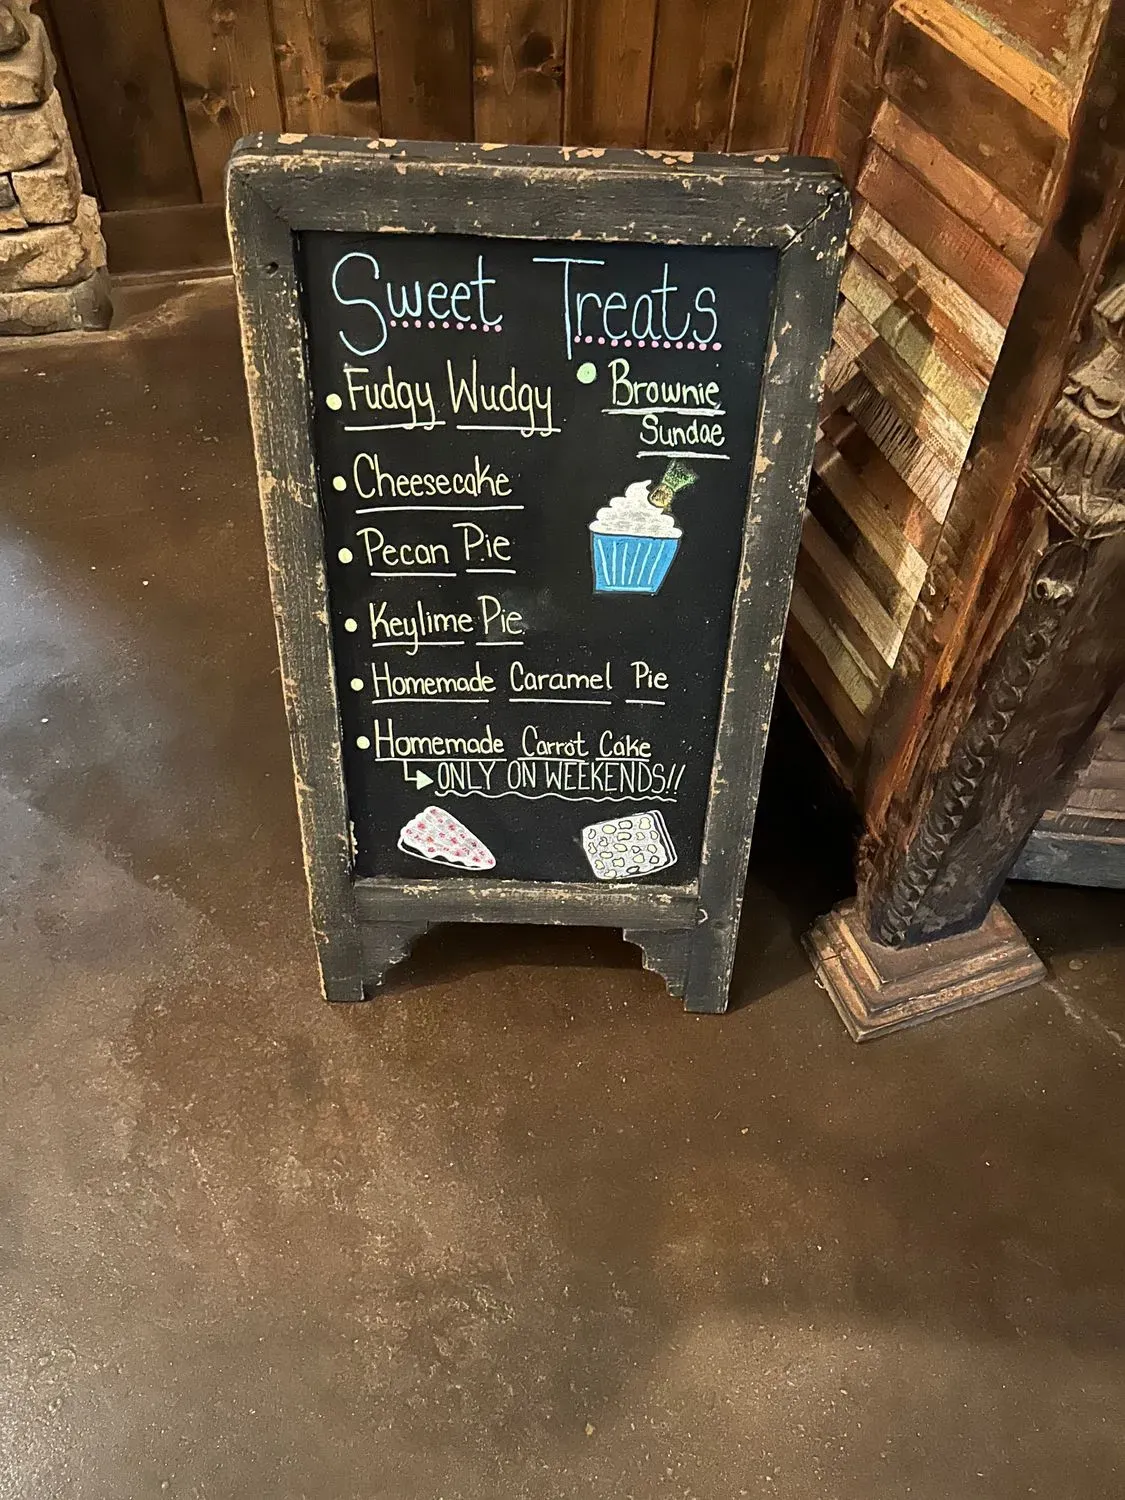 Sweet Treats
• Fudgy Wudgy
• Brownie
Sundae
• Cheesecake
• Pecan Pie
• Keylime Pie
• Homemade Caramel Pie
• Homemade Carrot Cake
ONLY ON WEEKENDS!!